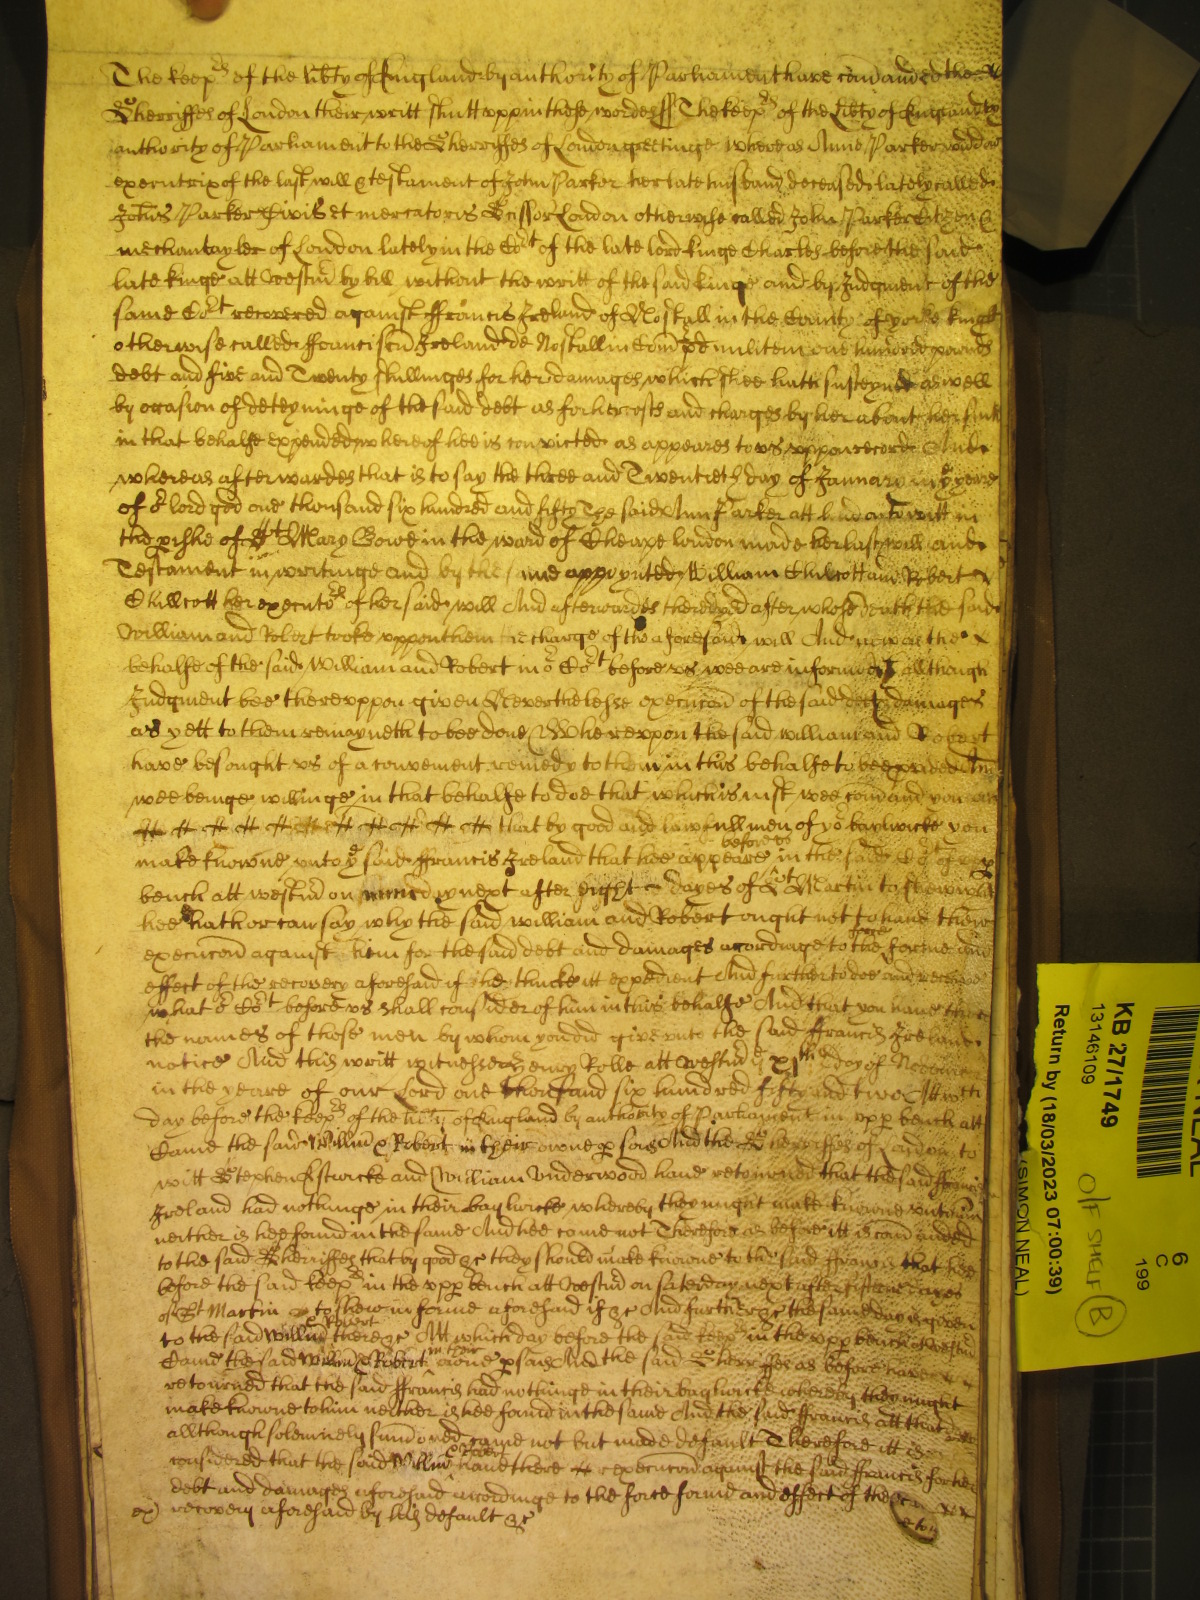 The keep[er]s of the lib[er]ty of England by authority of Parliament have com̄anded the
Sherriffes of London their writt shutt upp in these wordes ss The keep[er]s of the Lib[er]ty of England by
authority of Parliament to the Sherriffes of London greetinge whereas Anne Parker widdow
executrix of the last will & testament of John Parker her late husband deceased lately called
Joh[ann]is Parker Civis et mercatoris Scissor London otherwise called John Parker Citizen &
merchantayler of London lately in the Co[ur]t of the late lord kinge Charles before the said
late kinge att Westm̄ by bill without the writt of the said kinge and by Judgment of the
same Co[ur]t recovered against ffrancis Ireland of Nostall in the County of yorke knight
otherwise called ffranciscū Ireland de Nostall in Com̄ p̄d militem one hundred pounds
debt and five and Twenty shillinges for her damages which shee hath susteyned as well
by occasion of deteyninge of the said debt as for her costs and charges by her about her suite
in that behalfe expended whereof hee is convicted as appeares to us uppon record And
whereas afterwardes that is to say the three and Twentieth day of January in yͤ yeare
of oʳ lord god one thousand six hundred and fifty The said Ann Parker att London to witt in
the p[ar]ishe of Sᵗ Mary Bowe in the ward of Cheape london made her last will and
Testament in writinge and by the same appoynted William Chilcott and Robert
Chillcott her executoʳˢ of her said will And afterwardes there dyed after whose death the said
William and Robert tooke uppon them the charge of the aforesaid will And now on the
behalfe of the said William and Robert in oʳ Coʳᵗ before us wee are informed allthough
Judgment bee thereuppon given Neverthelesse execuc̄on of the said debt & damages
as yett to them remayneth to bee done Whereuppon the said William and Robert
have besought us of a convenient remedy to them in this behalfe to bee provided And
wee beinge willinge in that behalfe to doe that which is just wee com̄and you
that by good and lawfull men of yoʳ baylwicke you
make knowne unto yͤ said ffrancis Ireland that hee appeare before us in the said Coʳᵗ of upp[er]
bench att westm̄ on next after Eight dayes of Sᵗ Martin to shew what
hee hath or can say why the said William and Robert ought not to have their
execuc̄on against him for the said debt and damages accordinge to the force forme and
effect of the recovery aforesaid if he thincke itt expedient And further to doe and receive
what oʳ Coʳᵗ before us shall consider of him in this behalfe And that you have there
the names of those men by whom you did give unto the said ffrancis Ireland
notice And this writt witnesse Henry Rolle att Westm̄ yͤ xjᵗʰ day of November
in the yeare of our Lord one thousand six hundred fifty and two Att wᶜʰ
day before the keep[er]s of the lib[er]ty of England by authority of Parliament in upp[er] bench att
Came the said Willm̄ & Robert in their owne p[er]sons And the Sherriffes of London to
witt Stephen Estwicke and William Underwood have retourned that the said ffrancis
Ireland had nothinge in their baylwicke whereby they might make knowne unto him
neither is hee found in the same And hee come not Therefore as before itt is com̄anded
to the said Sherriffes that by good &c they should make knowne to the said ffrancis that hee
before the said keep[er]s in the upp[er] bench att Westm̄ on saterday next after fifteene dayes
of Sᵗ Martin to shew in forme aforesaid if &c And further &c the same day is given
to the said Willm̄ & Robert there &c Att which day before the said keep[er]s in the upp[er] bench att westm̄
Came the said Willm̄ & Robert in their owne p[er]sons And the said Sherriffes as before have
retourned that the said ffrancis had nothinge in their baylwicke whereby they might
make knowne to him neither is hee found in the same And the said ffrancis att that day
allthough solemnely sum̄oned came not but made default Therefore itt is
considered that the said Willm̄ & Robert have there execuc̄on against the said ffrancis for the
debt and damages aforesaid accordinge to the force forme and effect of the
ex) recovery aforesaid by his default &c
KB 27/1749
13146109
Return by (18/03/2023 07:00:39)
(SIMON NEAL)
6
C
199
B